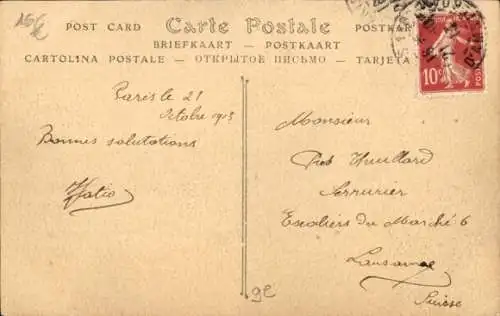 15€
POST CARD Carte Postale POSTKAR
BRIEFKAART - POSTKAART
CARTOLINA POSTALE - ОТКРЫТОЕ ПИСЬМО - TARJETA
10c
POSTES
Paris le 21
Octobre 1913
Bonnes salutations
Monsieur
Serrurier
Escaliers du Marché 6
Lausanne
Suisse
gc